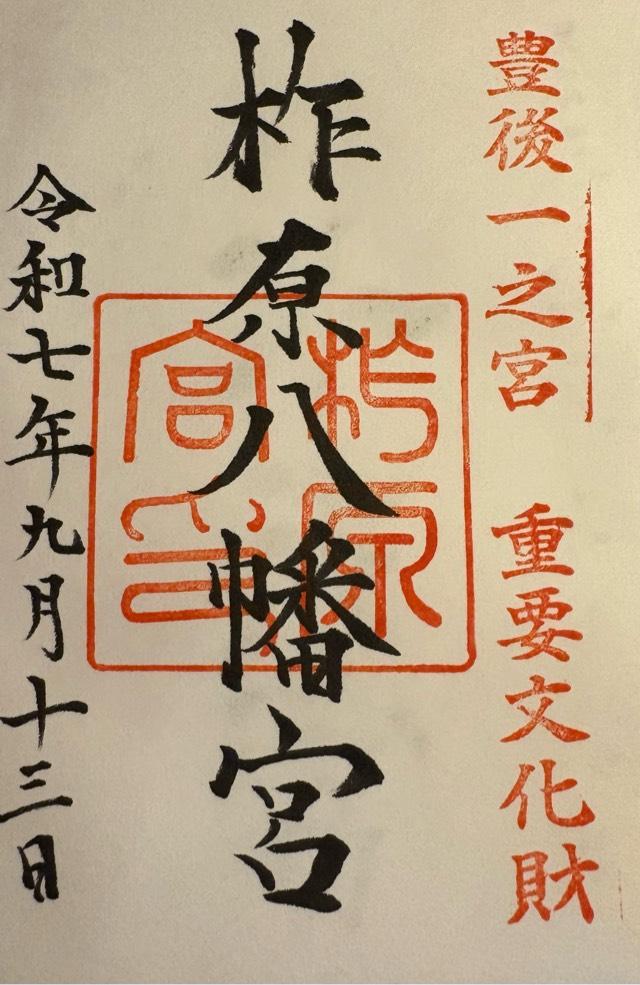 豊後一之宮 重要文化財
柞原八幡宮
柞原宮印
令和七年九月十三日